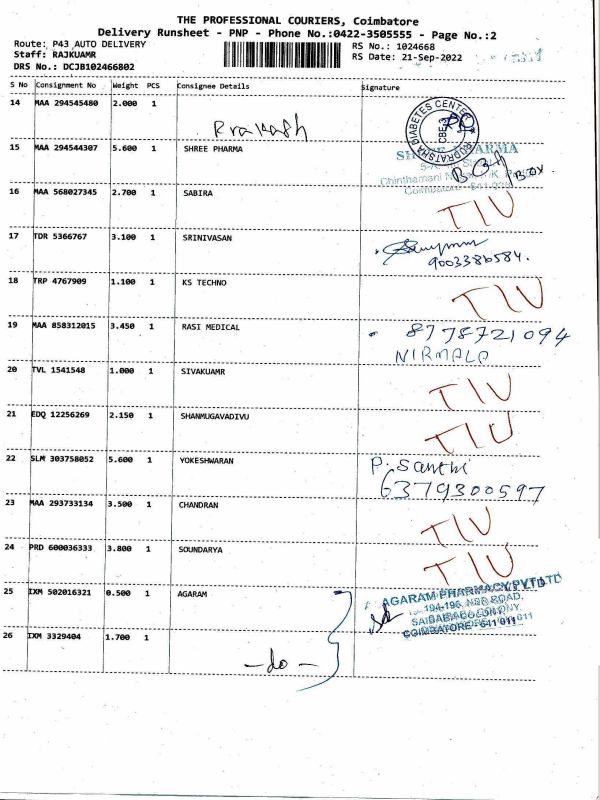 THE PROFESSIONAL COURIERS, Coimbatore
Delivery Runsheet - PNP - Phone No.:0422-3505555 - Page No.:2
Route: P43 AUTO DELIVERY
Staff: RAJKUAMR
DRS No.: DCJB102466802
RS No.: 1024668
RS Date: 21-Sep-2022
S No Consignment No Weight PCS Consignee Details Signature
14 MAA 294545480 2.000 1
Prakash
DIABETES CENTRE
CBE-3
15 MAA 294544307 5.600 1 SHREE PHARMA
BOX
16 MAA 568027345 2.700 1 SABIRA TIU
17 TDR 5366767 3.100 1 SRINIVASAN
9003386584.
18 TRP 4767909 1.100 1 KS TECHNO TIU
19 MAA 858312015 3.450 1 RASI MEDICAL 8778721094
NIRMALA
20 TVL 1541548 1.000 1 SIVAKUAMR TIU
21 EDQ 12256269 2.150 1 SHANMUGAVADIVU TIU
22 SLM 303758052 5.600 1 YOKESHWARAN P. Santhi
6379300597
23 MAA 293733134 3.500 1 CHANDRAN TIU
24 PRD 600036333 3.800 1 SOUNDARYA TIU
25 IXM 502016321 0.500 1 AGARAM AGARAM PHARMACY PVT LTD
194-196, NSR ROAD,
SAIBABA COLONY,
COIMBATORE - 641 011
26 IXM 3329404 1.700 1
-do-